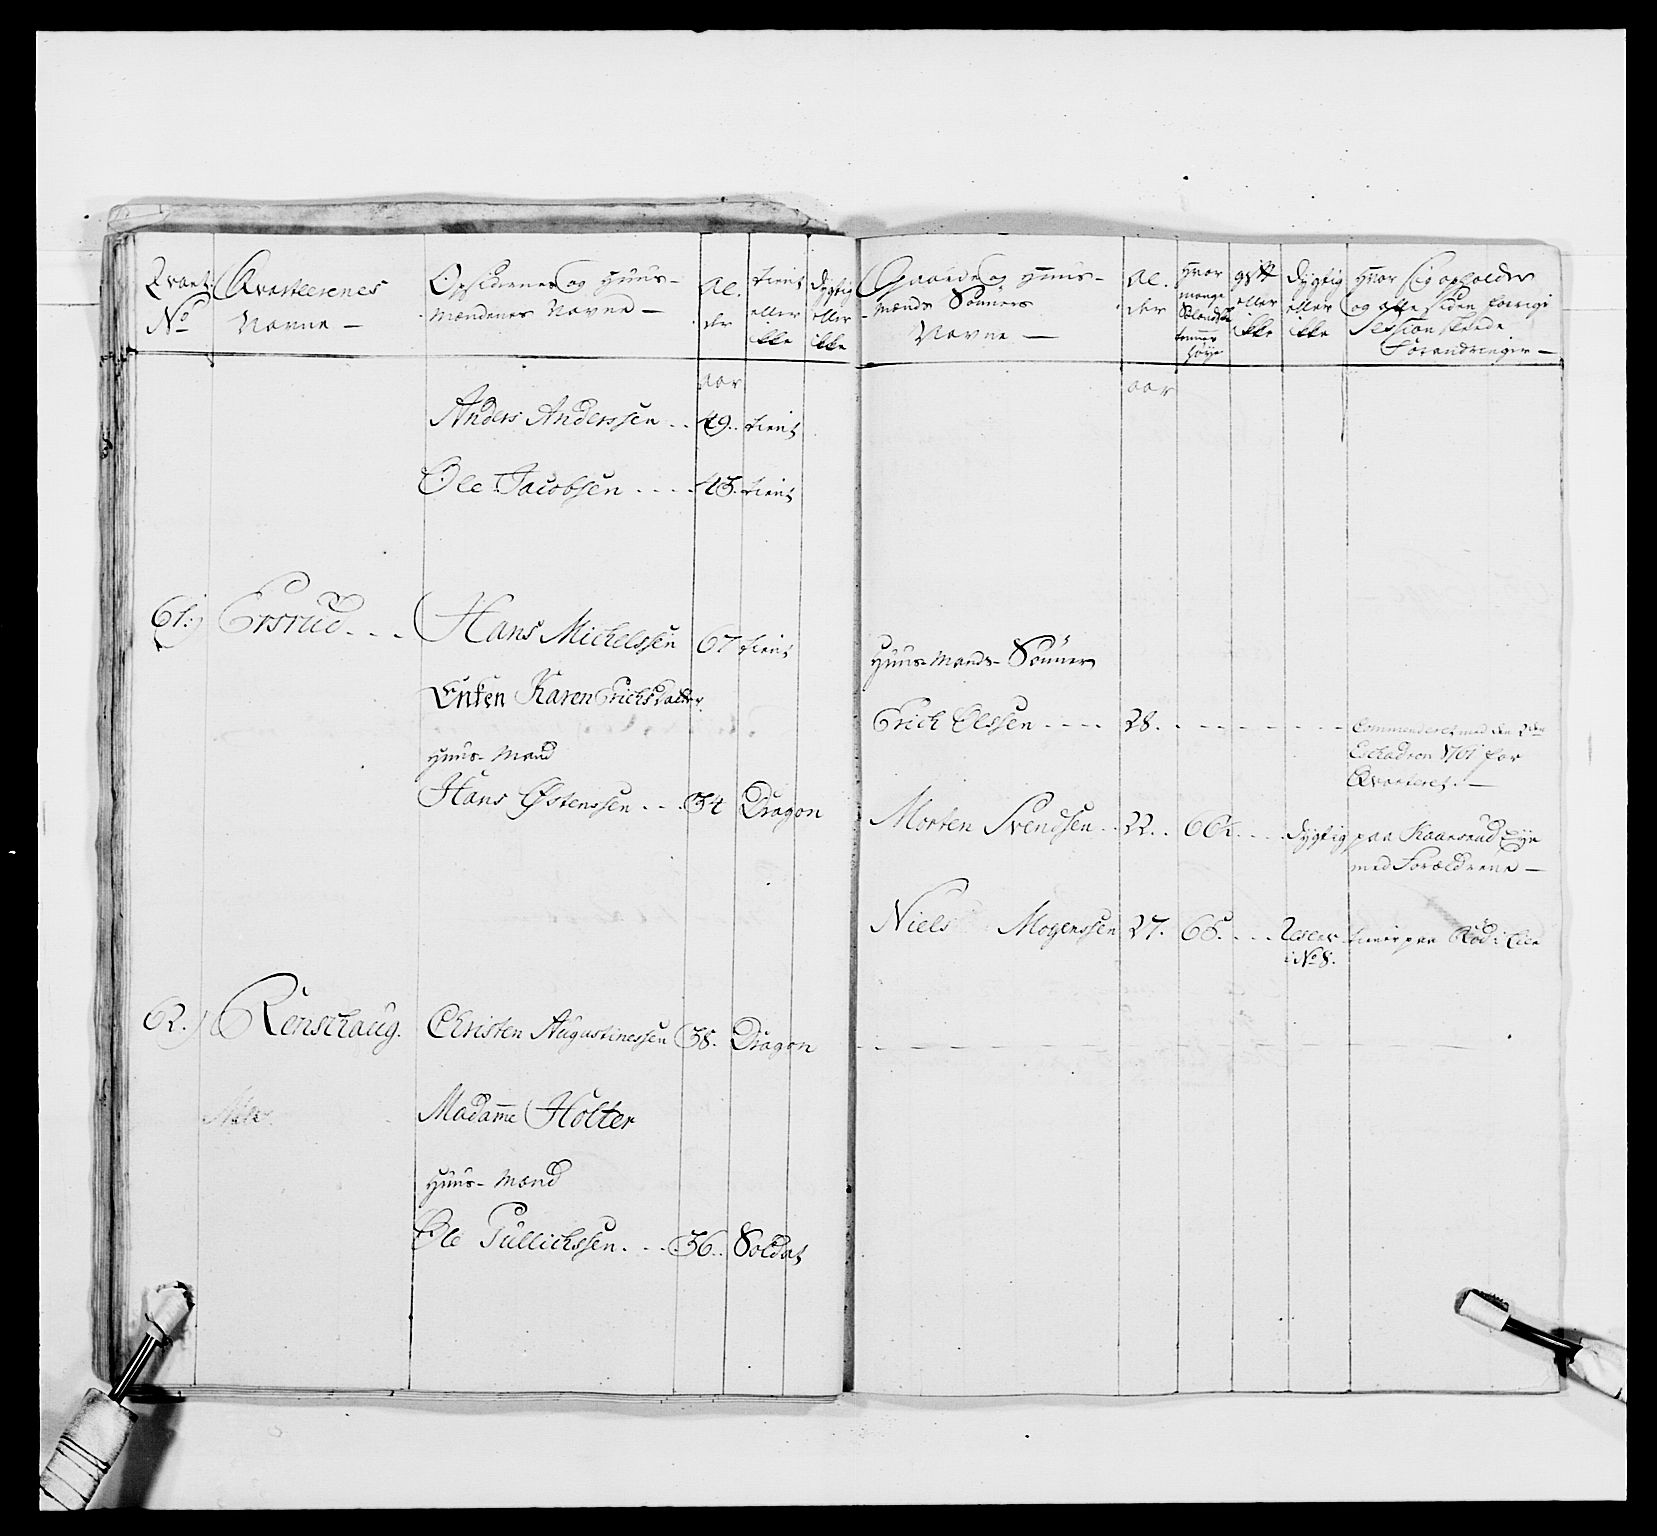 Qvart: No
Qvarteerenes Navne —
Opsidernes og Huus-Mændenes Navne —
Al. der
tient eller Ikke
dygtig eller Ikke
Gaarde og Huus-Mænds Sönners Navne —
Al. der
Hvor mange Sælandske tommer höye
gift eller Ikke
dygtig eller Ikke
Hvor sig opholder og alle siden forrige Session skeede Forandringer —
aar
aar
Anders Anderssen . . 49. tient
Ole Jacobsen . . . . 43. tient
61.) Ersrud . . . Hans Michelssen 67 tient
Huus-Mands-Sönner
Enken Karen Erichsdatter
Erich Olssen . . . . 28. Commanderet med den 2den
Eschadron for
Qvarteret. —
Huus-Mand
Hans Østenssen . . . 34 Dragon
Morten Svendsen . . 22. 66. . . dygtig paa Kaarsrud Eye
med Forældrene —
Niels Mogenssen 27. 65. . . . Reserv i No 8. tiener paa
62.) Renschaug. Christen Augustinessen 38. Dragon
Madamme Holter
Huus-Mand
Ole Gullichssen . . . 36. Soldat